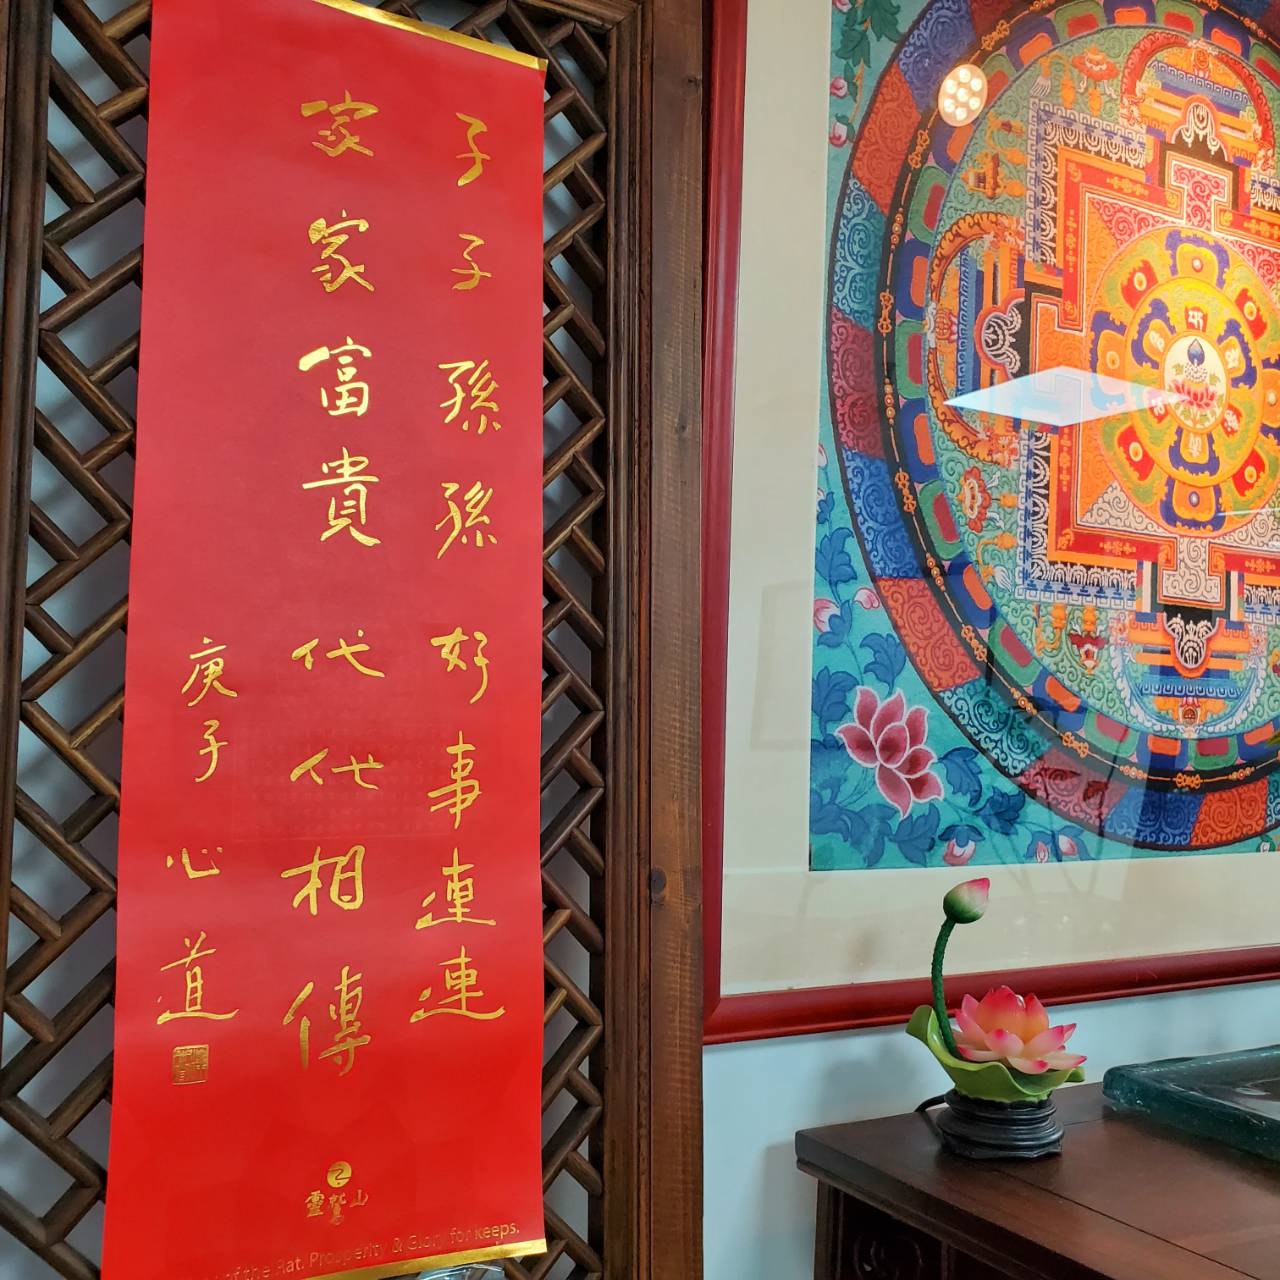 子子孫孫好事連連
家家富貴代代相傳
庚子
心道
靈鷲山
of the Rat. Prosperity & Glory for keeps.